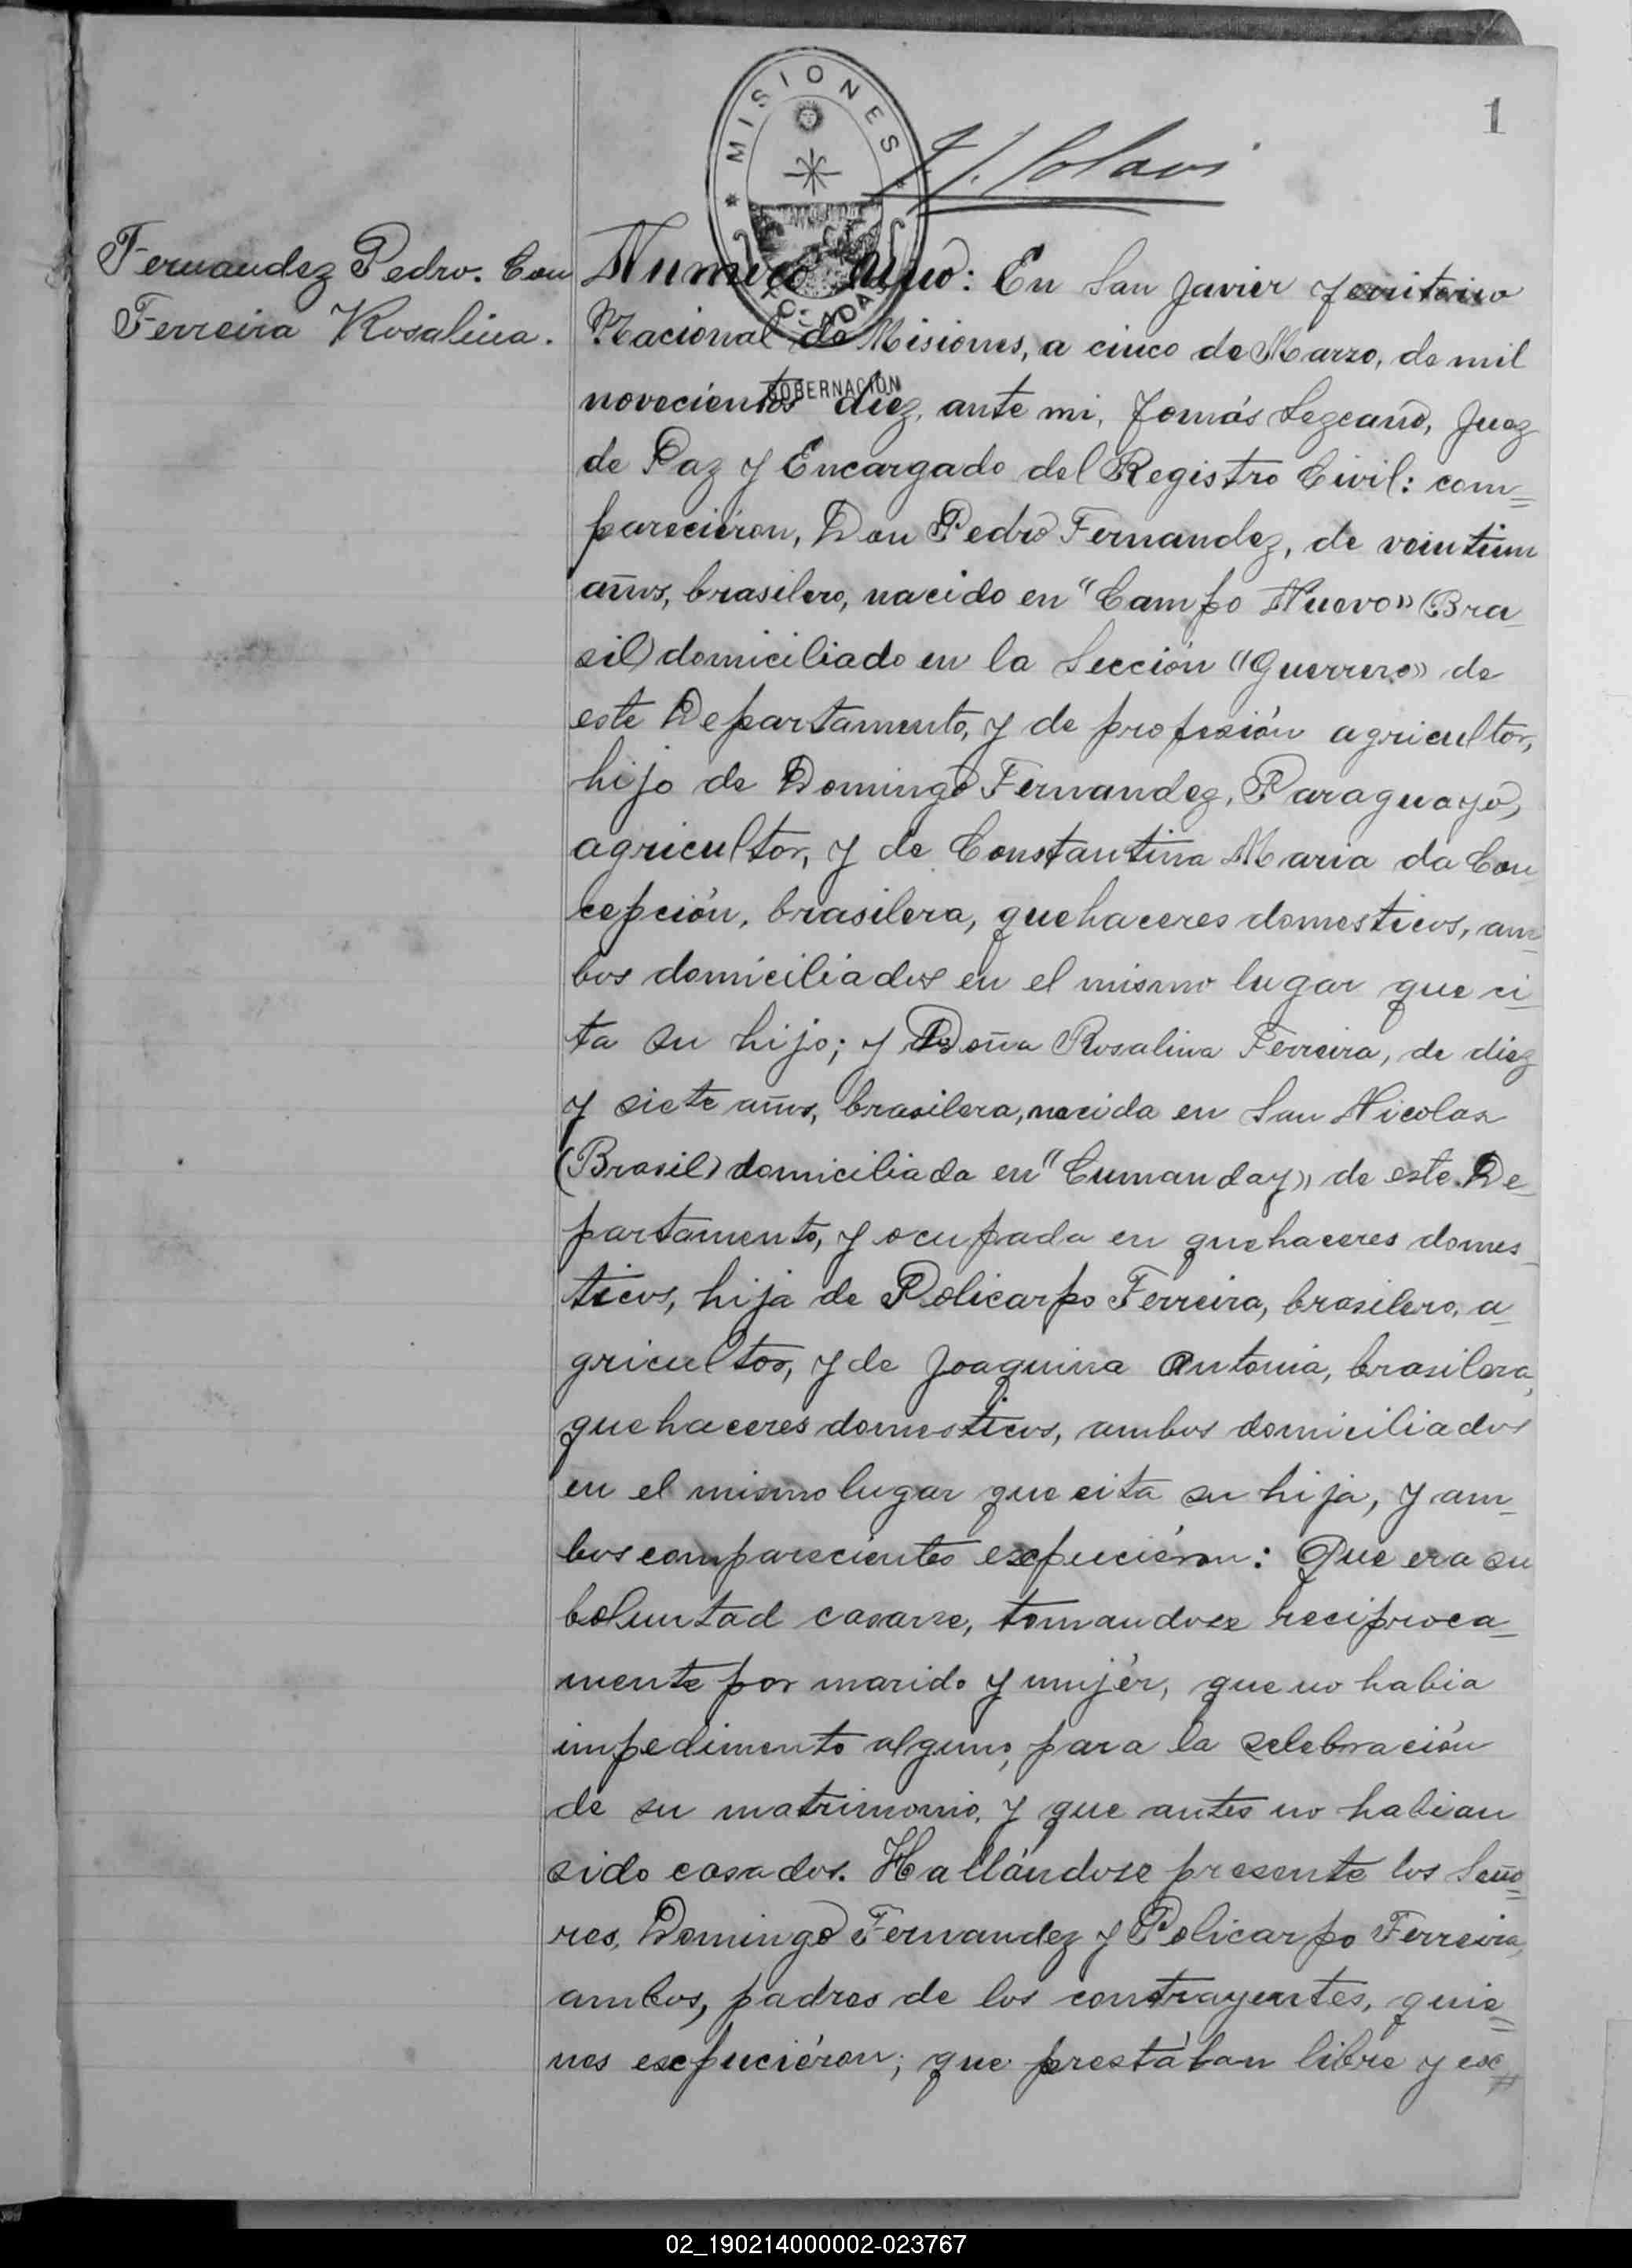 MISIONES
1
Fernandez Pedro. Con
Ferreira Rosalina.
Numero Uno: En San Javier Territorio
Nacional de Misiones, a cinco de Marzo, de mil
GOBERNACIÓN
novecientos diez, ante mi, Tomás Lezcano, Juez
de Paz y Encargado del Registro Civil: com=
parecieron, Don Pedro Fernandez, de veintiun
años, brasilero, nacido en "Campo Nuevo" (Bra
sil) domiciliado en la Sección "Guerrero" de
este Departamento, y de profesión agricultor,
hijo de Domingo Fernandez, Paraguayo,
agricultor, y de Constantina Maria da Con
cepción, brasilera, quehaceres domesticos, am=
bos domiciliados en el mismo lugar que ci
ta su hijo; y Doña Rosalina Ferreira, de diez
y siete años, brasilera, nacida en San Nicolas
(Brasil) domiciliada en "Cumanday" de este De
partamento, y ocupada en quehaceres domes
ticos, hija de Policarpo Ferreira, brasilero, a
gricultor, y de Joaquina Antonia, brasilera,
quehaceres domesticos, ambos domiciliados
en el mismo lugar que cita su hija, y am=
bos comparecientes expucierón: Que era su
boluntad casarse, tomandose reciproca=
mente por marido y mujér, que no habia
impedimento alguno, para la selebración
de su matrimonio, y que antes no habian
sido casados. Hallándose presente los Seño=
res, Domingo Fernandez y Policarpo Ferreira,
ambos, padres de los contrayentes, quie=
nes expuciéron; que prestában libre y ex=
02_190214000002-023767